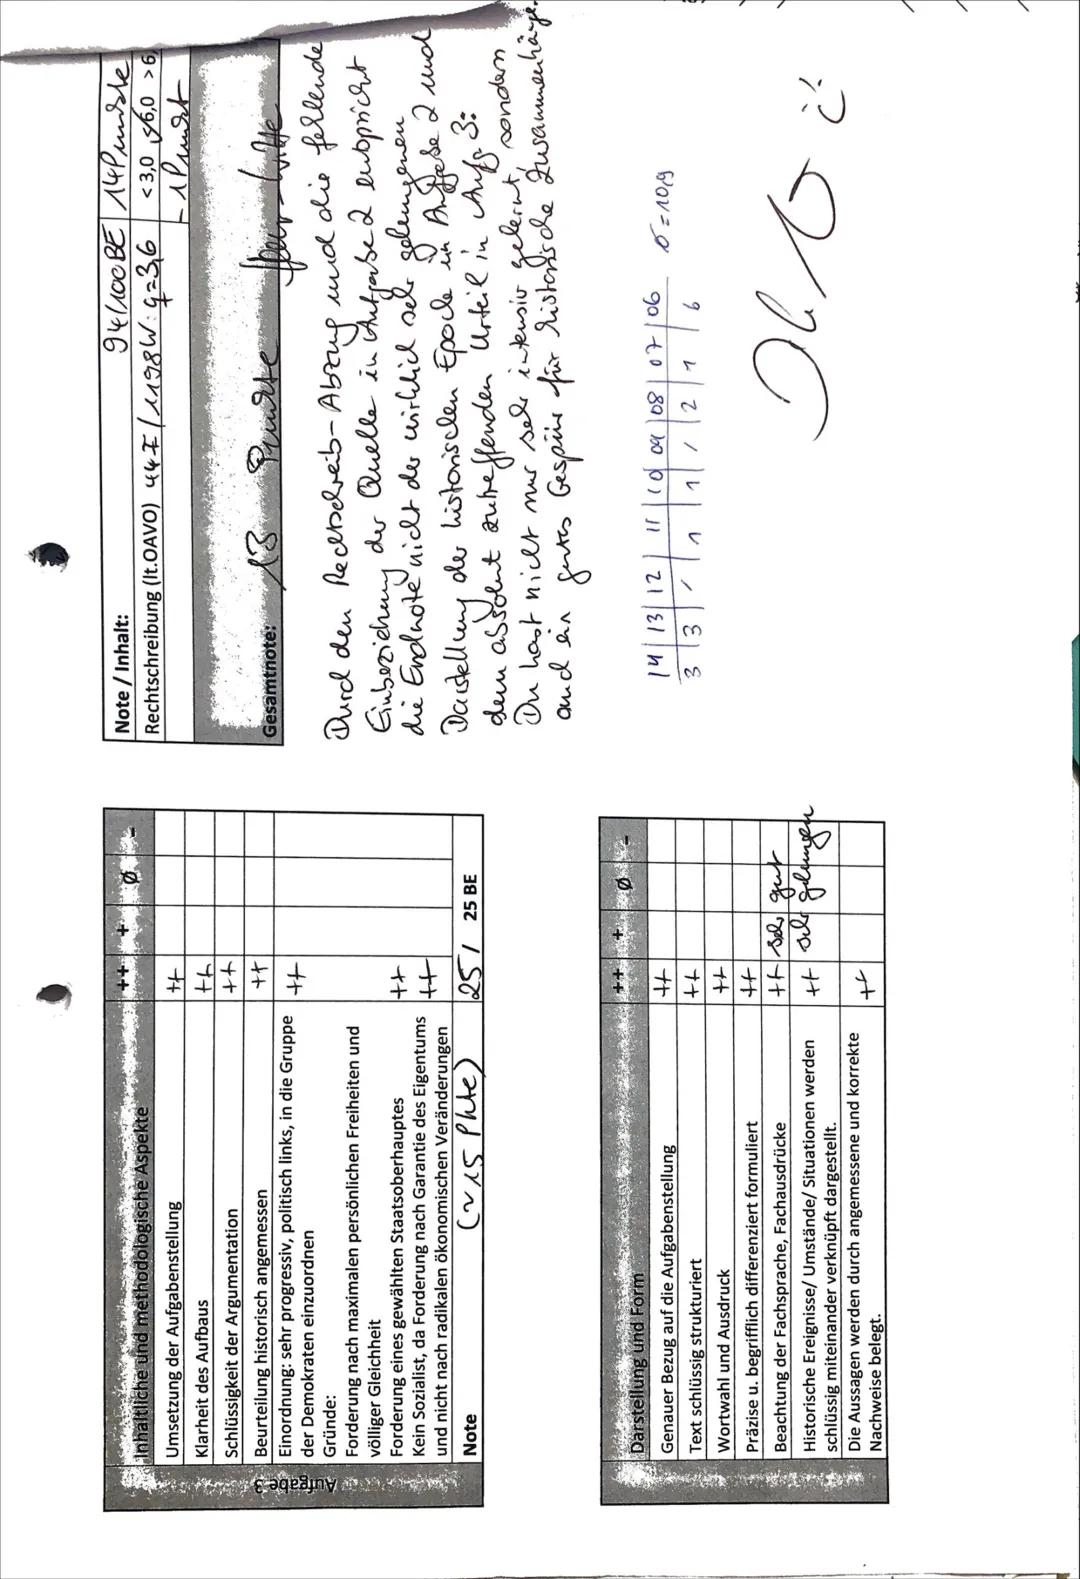 Inhaltliche und methodologische Aspekte ++ + Ø -
Aufgabe 3
Umsetzung der Aufgabenstellung ++
Klarheit des Aufbaus ++
Schlüssigkeit der Argumentation ++
Beurteilung historisch angemessen ++
Einordnung: sehr progressiv, politisch links, in die Gruppe ++
der Demokraten einzuordnen
Gründe:
Forderung nach maximalen persönlichen Freiheiten und
völliger Gleichheit
Forderung eines gewählten Staatsoberhauptes ++
Kein Sozialist, da Forderung nach Garantie des Eigentums ++
und nicht nach radikalen ökonomischen Veränderungen
Note (~15 Pkte) 25/ 25 BE
Darstellung und Form ++ + Ø -
Genauer Bezug auf die Aufgabenstellung ++
Text schlüssig strukturiert ++
Wortwahl und Ausdruck ++
Präzise u. begrifflich differenziert formuliert ++
Beachtung der Fachsprache, Fachausdrücke ++ sehr gut
Historische Ereignisse/ Umstände/ Situationen werden ++ sehr gelungen
schlüssig miteinander verknüpft dargestellt.
Die Aussagen werden durch angemessene und korrekte ++
Nachweise belegt.
Note / Inhalt: 94/100BE 14Punkte
Rechtschreibung (lt.OAVO) 44F/1198W: q=3,6 <3,0 ≤6,0 >6,
-1Punkt
Gesamtnote: 13 Punkte
Durch den Rechtschreib-Abzug und die fehlende
Einbeziehung der Quelle in Aufgabe 2 entspricht
die Endnote nicht der wirklich sehr gelungenen
Darstellung der historischen Epoche in Aufgabe 2 und
dem absolut zutreffenden Urteil in Aufg. 3:
Du hast nicht nur sehr intensiv gelernt, sondern
auch ein gutes Gespür für historische Zusammenhänge.
14/13/12/11/10/09/08/07/06 Ø=10,9
3/3/-/1/1/-/2/1/6